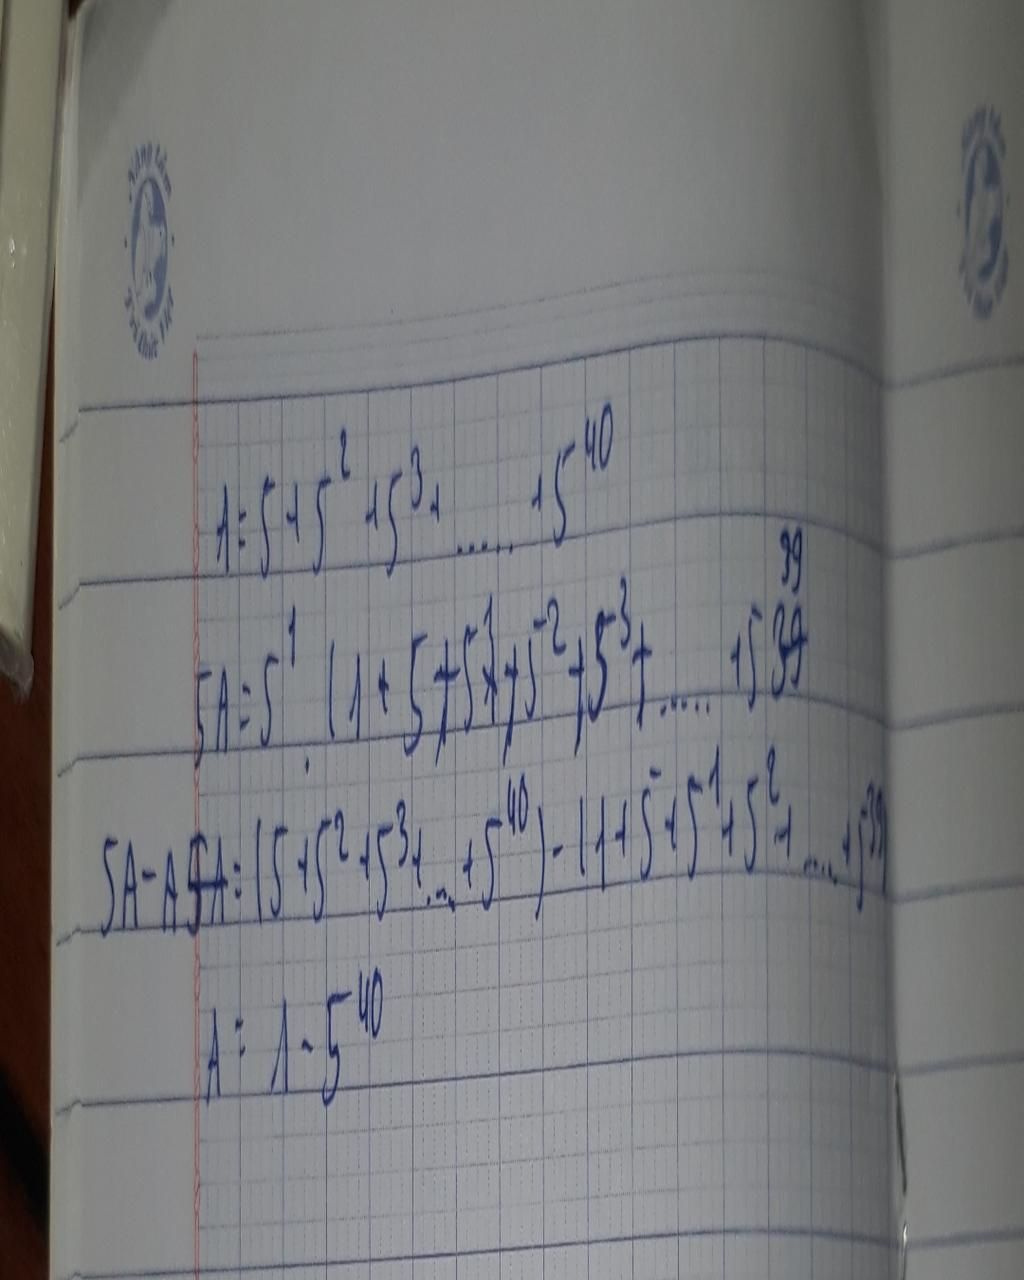 A = 5 + 5² + 5³ + ..... + 5⁴⁰
5A = 5¹ (1 + 5 + 5¹ + 5² + 5³ + ..... + 5³⁹
5A - A 5A = (5 + 5² + 5³ + .... + 5⁴⁰) - (1 + 5 + 5¹ + 5² + .... + 5³⁹
A = 1 - 5⁴⁰